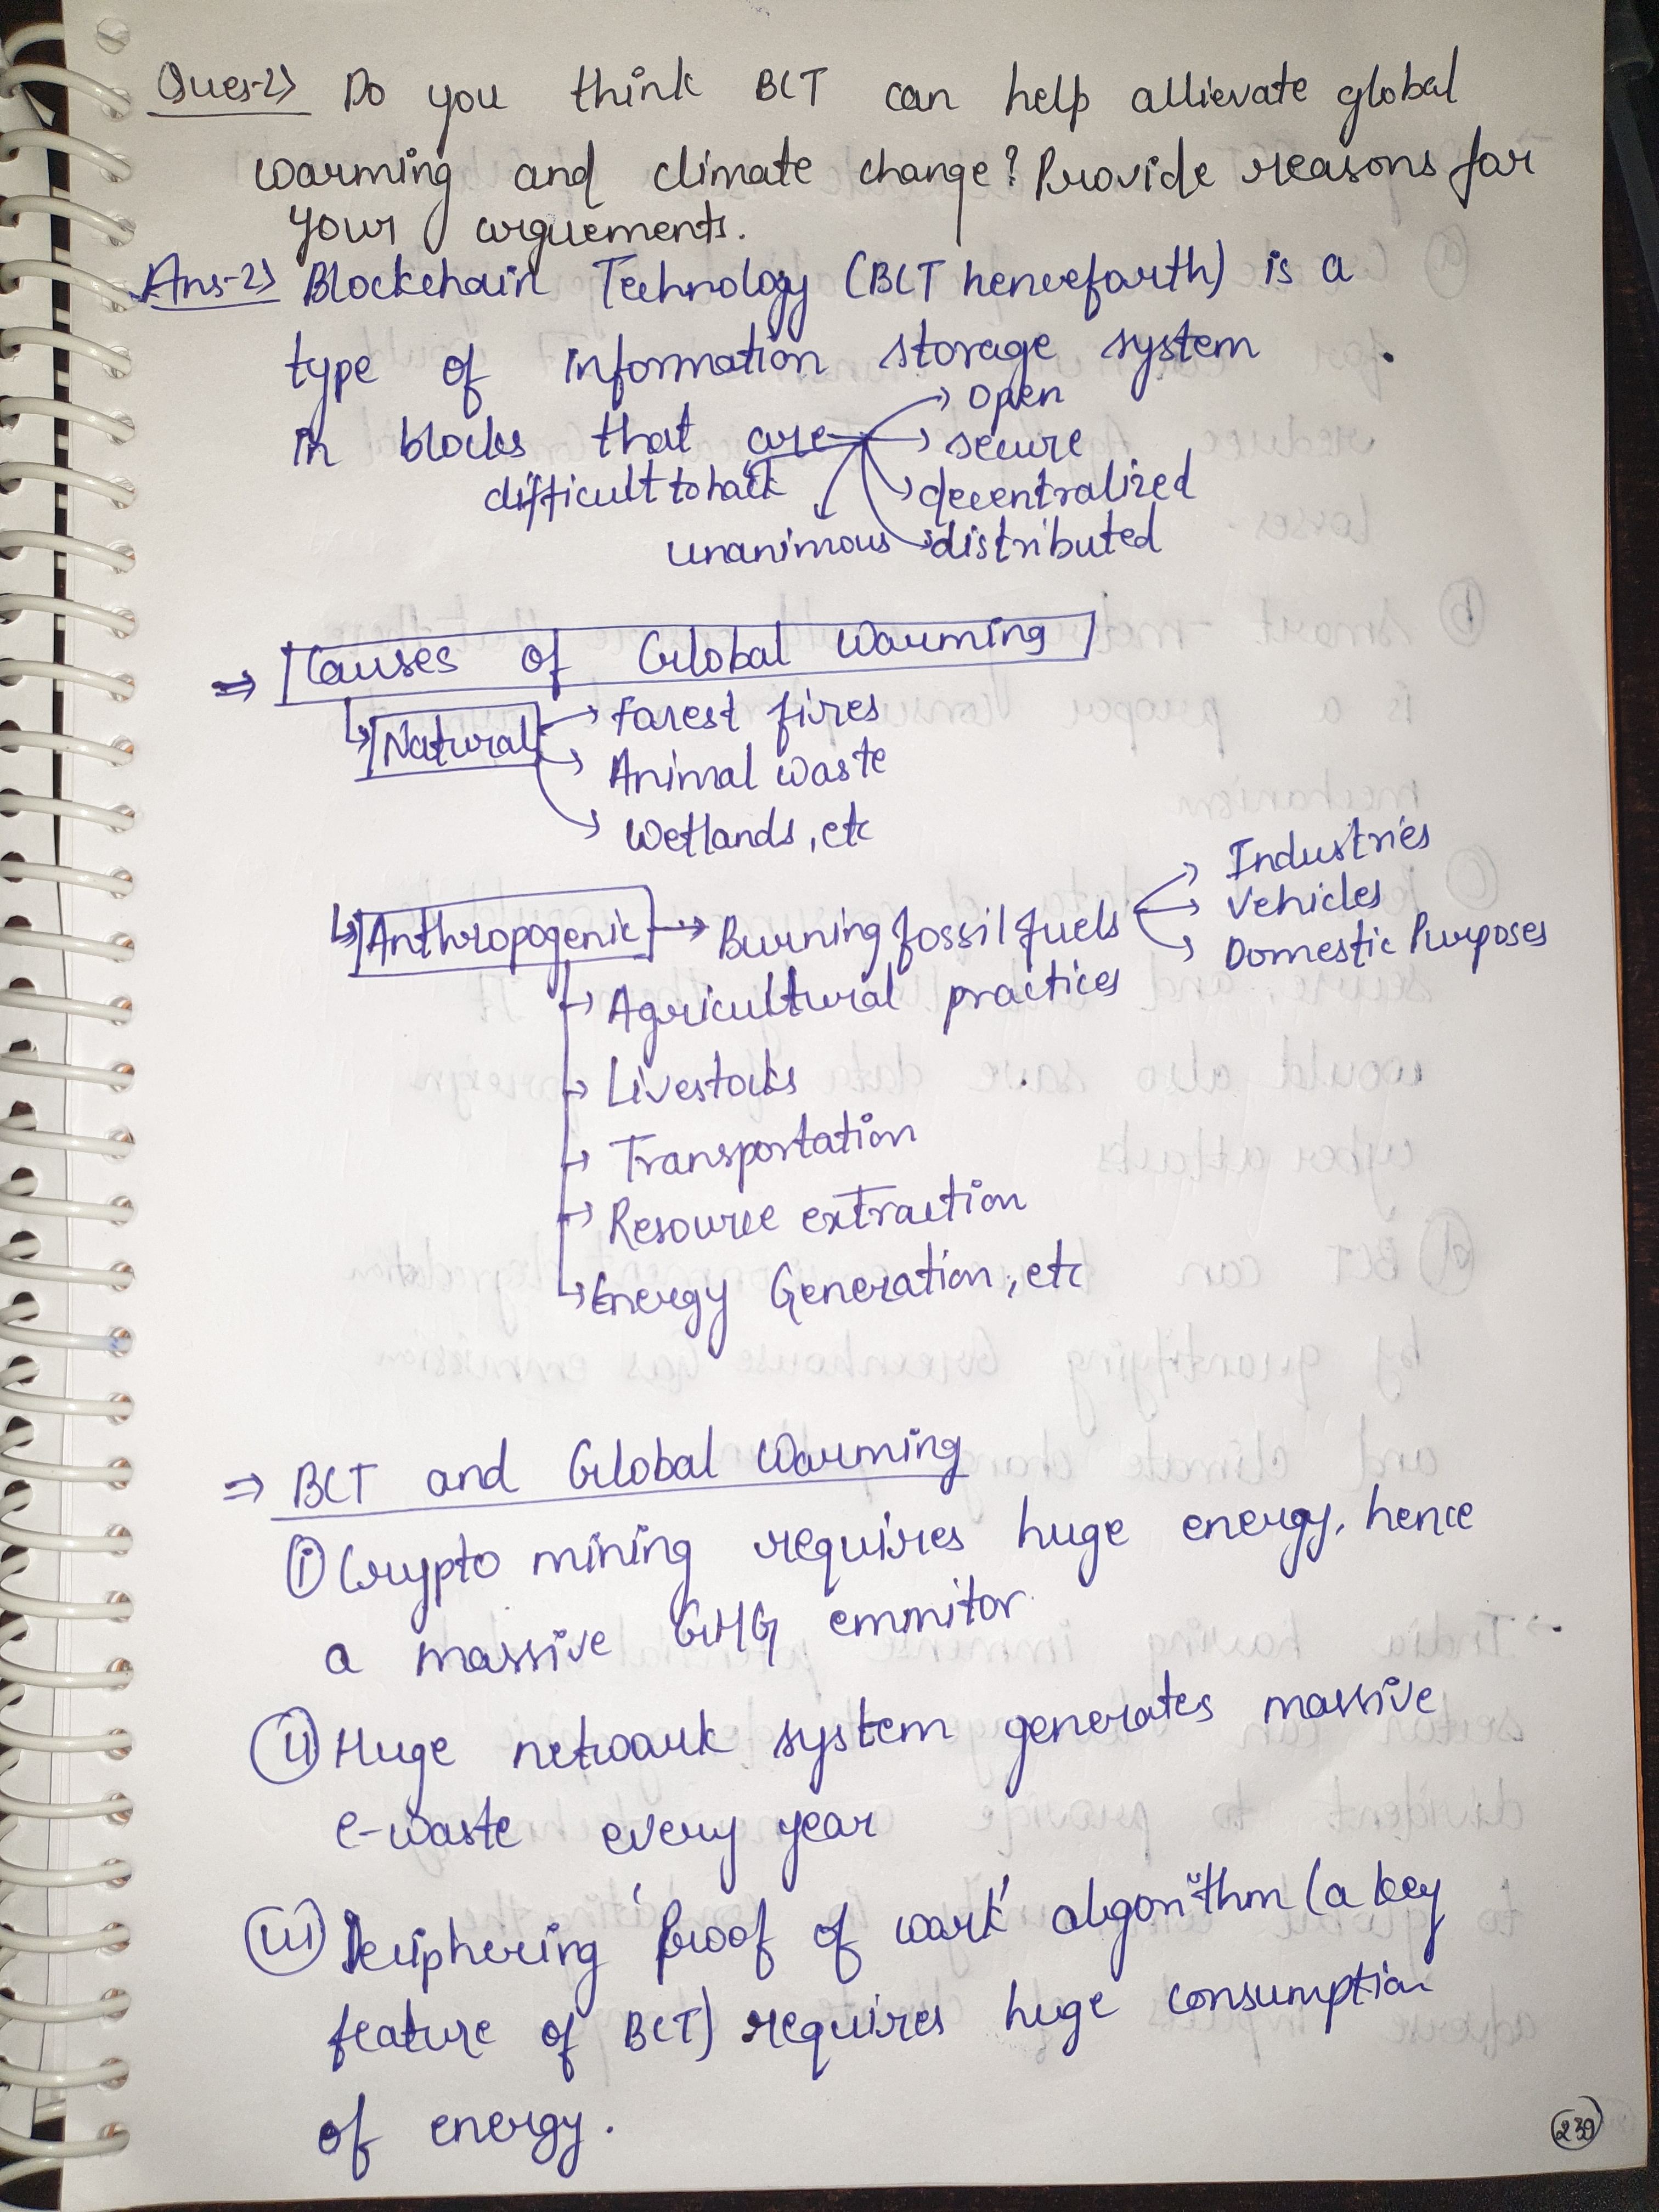 Ques-2) Do you think BCT can help allievate global
warming and climate change? Provide reasons for
your arguements.
Ans-2) Blockchain Technology (BCT henceforth) is a
type of information storage system
in blocks that are
Open
secure
decentralized
distributed
unanimous
difficult to hack
⇒ Causes of Global Warming
Natural
Forest fires
Animal waste
Wetlands, etc
Anthropogenic → Burning fossil fuels
Industries
Vehicles
Domestic Purposes
Agricultural practices
Livestocks
Transportation
Resource extraction
Energy Generation, etc
⇒ BCT and Global Warming
(i) Crypto mining requires huge energy, hence
a massive GHG emmitor
(ii) Huge network system generates massive
e-waste every year
(iii) Deciphering 'Proof of work' algorithm (a key
feature of BCT) requires huge consumption
of energy.
239